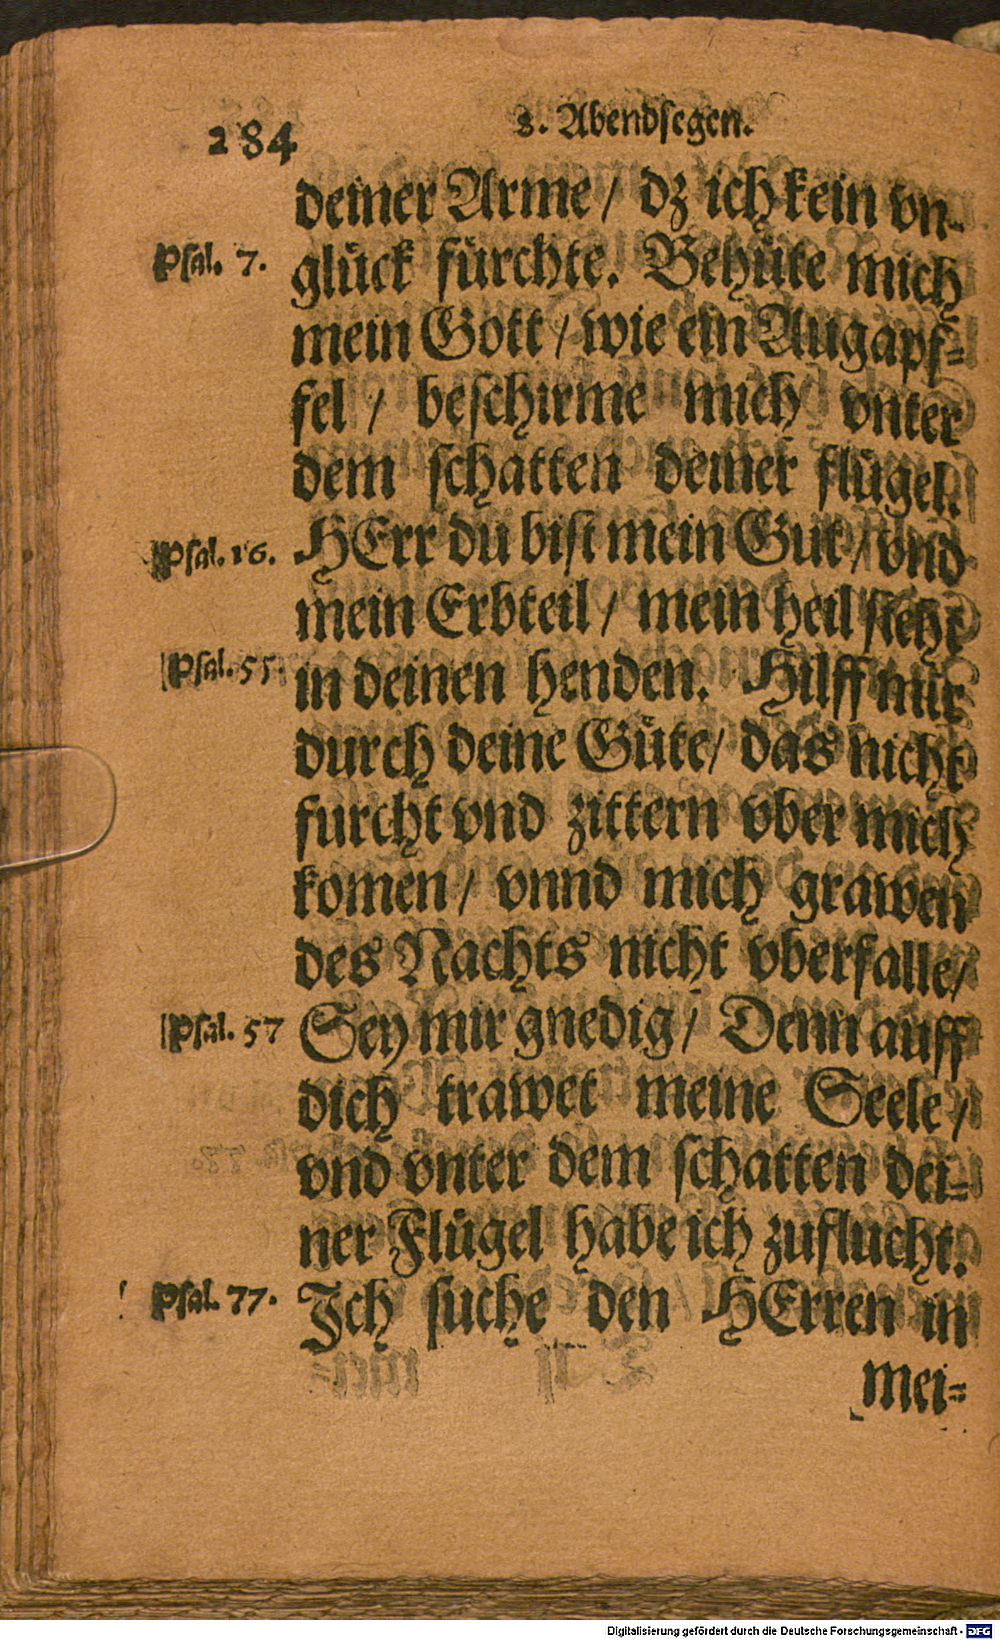 284
8. Abendsegen.
deiner Arme / dz ich kein vn-
Psal. 7.
glück fürchte. Behüte mich
mein Gott / wie ein Augapf-
fel / beschirme mich vnter
dem schatten deiner flügel.
Psal. 16.
HErr du bist mein Gut / vnd
mein Erbteil / mein heil steht
Psal. 55.
in deinen henden. Hilff mir
durch deine Güte / das nicht
furcht vnd zittern vber mich
komen / vnnd mich grawen
des Nachts nicht vberfalle /
Psal. 57
Sey mir gnedig / Denn auff
dich trawet meine Seele /
vnd vnter dem schatten dei-
ner Flügel habe ich zuflucht.
Psal. 77.
Ich suche den HErren in
mei-
Digitalisierung gefördert durch die Deutsche Forschungsgemeinschaft - DFG